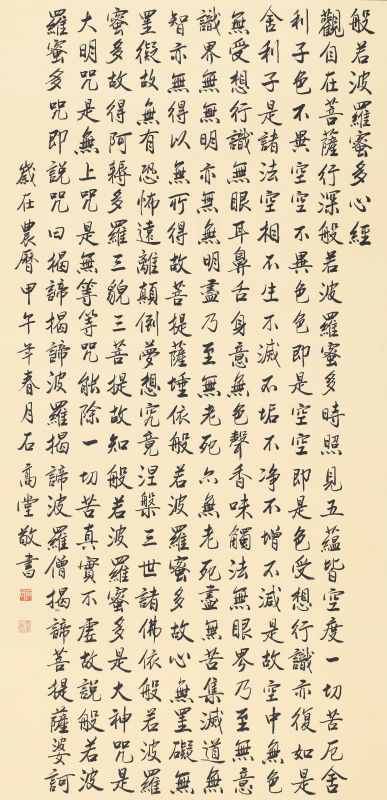 般若波羅蜜多心經
觀自在菩薩行深般若波羅蜜多時照見五蘊皆空度一切苦厄舍
利子色不異空空不異色色即是空空即是色受想行識亦復如是
舍利子是諸法空相不生不滅不垢不净不增不減是故空中無色
無受想行識無眼耳鼻舌身意無色聲香味觸法無眼界乃至無意
識界無無明亦無無明盡乃至無老死亦無老死盡無苦集滅道無
智亦無得以無所得故菩提薩埵依般若波羅蜜多故心無罣礙無
罣礙故無有恐怖遠離顛倒夢想究竟涅槃三世諸佛依般若波羅
蜜多故得阿耨多羅三藐三菩提故知般若波羅蜜多是大神咒是
大明咒是無上咒是無等等咒能除一切苦真實不虛故說般若波
羅蜜多咒即說咒曰揭諦揭諦波羅揭諦波羅僧揭諦菩提薩婆訶
歲在農曆甲午年春月石高堂敬書